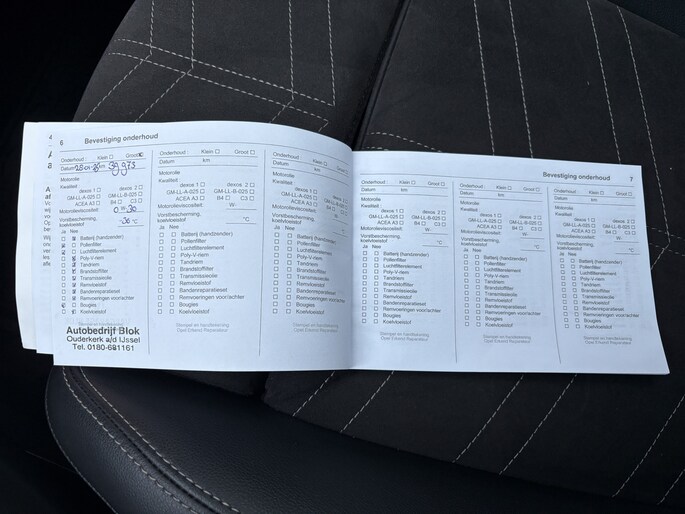 6 Bevestiging onderhoud
Onderhoud : Klein ☐ Groot ☒
Datum km
Motorolie
Kwaliteit
dexos 1 ☐ dexos 2 ☐
GM-LL-A-025 ☐ GM-LL-B-025 ☐
ACEA A3 ☐ B4 ☐ C3 ☐
Motorolieviscositeit: 0w30
Vorstbescherming,
koelvloeistof °C
Ja Nee
Batterij (handzender)
Pollenfilter
Luchtfilterelement
Poly-V-riem
Tandriem
Brandstoffilter
Transmissieolie
Remvloeistof
Bandenreparatieset
Remvoeringen voor/achter
Bougies
Koelvloeistof
Autobedrijf Blok
Ouderkerk a/d IJssel
Tel. 0180-681161
Onderhoud : Klein ☐ Groot ☐
Datum km
Motorolie
Kwaliteit
dexos 1 ☐ dexos 2 ☐
GM-LL-A-025 ☐ GM-LL-B-025 ☐
ACEA A3 ☐ B4 ☐ C3 ☐
Motorolieviscositeit: W-
Vorstbescherming,
koelvloeistof °C
Ja Nee
☐ ☐ Batterij (handzender)
☐ ☐ Pollenfilter
☐ ☐ Luchtfilterelement
☐ ☐ Poly-V-riem
☐ ☐ Tandriem
☐ ☐ Brandstoffilter
☐ ☐ Transmissieolie
☐ ☐ Remvloeistof
☐ ☐ Bandenreparatieset
☐ ☐ Remvoeringen voor/achter
☐ ☐ Bougies
☐ ☐ Koelvloeistof
Stempel en handtekening
Opel Erkend Reparateur
Onderhoud : Klein ☐ Groot ☐
Datum km
Motorolie
Kwaliteit
dexos 1 ☐ dexos 2 ☐
GM-LL-A-025 ☐ GM-LL-B-025 ☐
ACEA A3 ☐ B4 ☐ C3 ☐
Motorolieviscositeit: W-
Vorstbescherming,
koelvloeistof °C
Ja Nee
☐ ☐ Batterij (handzender)
☐ ☐ Pollenfilter
☐ ☐ Luchtfilterelement
☐ ☐ Poly-V-riem
☐ ☐ Tandriem
☐ ☐ Brandstoffilter
☐ ☐ Transmissieolie
☐ ☐ Remvloeistof
☐ ☐ Bandenreparatieset
☐ ☐ Remvoeringen voor/achter
☐ ☐ Bougies
☐ ☐ Koelvloeistof
Stempel en handtekening
Opel Erkend Reparateur
Bevestiging onderhoud 7
Onderhoud : Klein ☐ Groot ☐
Datum km
Motorolie
Kwaliteit
dexos 1 ☐ dexos 2 ☐
GM-LL-A-025 ☐ GM-LL-B-025 ☐
ACEA A3 ☐ B4 ☐ C3 ☐
Motorolieviscositeit: W-
Vorstbescherming,
koelvloeistof °C
Ja Nee
☐ ☐ Batterij (handzender)
☐ ☐ Pollenfilter
☐ ☐ Luchtfilterelement
☐ ☐ Poly-V-riem
☐ ☐ Tandriem
☐ ☐ Brandstoffilter
☐ ☐ Transmissieolie
☐ ☐ Remvloeistof
☐ ☐ Bandenreparatieset
☐ ☐ Remvoeringen voor/achter
☐ ☐ Bougies
☐ ☐ Koelvloeistof
Stempel en handtekening
Opel Erkend Reparateur
Onderhoud : Klein ☐ Groot ☐
Datum km
Motorolie
Kwaliteit
dexos 1 ☐ dexos 2 ☐
GM-LL-A-025 ☐ GM-LL-B-025 ☐
ACEA A3 ☐ B4 ☐ C3 ☐
Motorolieviscositeit: W-
Vorstbescherming,
koelvloeistof °C
Ja Nee
☐ ☐ Batterij (handzender)
☐ ☐ Pollenfilter
☐ ☐ Luchtfilterelement
☐ ☐ Poly-V-riem
☐ ☐ Tandriem
☐ ☐ Brandstoffilter
☐ ☐ Transmissieolie
☐ ☐ Remvloeistof
☐ ☐ Bandenreparatieset
☐ ☐ Remvoeringen voor/achter
☐ ☐ Bougies
☐ ☐ Koelvloeistof
Stempel en handtekening
Opel Erkend Reparateur
Onderhoud : Klein ☐ Groot ☐
Datum km
Motorolie
Kwaliteit
dexos 1 ☐ dexos 2 ☐
GM-LL-A-025 ☐ GM-LL-B-025 ☐
ACEA A3 ☐ B4 ☐ C3 ☐
Motorolieviscositeit: W-
Vorstbescherming,
koelvloeistof °C
Ja Nee
☐ ☐ Batterij (handzender)
☐ ☐ Pollenfilter
☐ ☐ Luchtfilterelement
☐ ☐ Poly-V-riem
☐ ☐ Tandriem
☐ ☐ Brandstoffilter
☐ ☐ Transmissieolie
☐ ☐ Remvloeistof
☐ ☐ Bandenreparatieset
☐ ☐ Remvoeringen voor/achter
☐ ☐ Bougies
☐ ☐ Koelvloeistof
Stempel en handtekening
Opel Erkend Reparateur